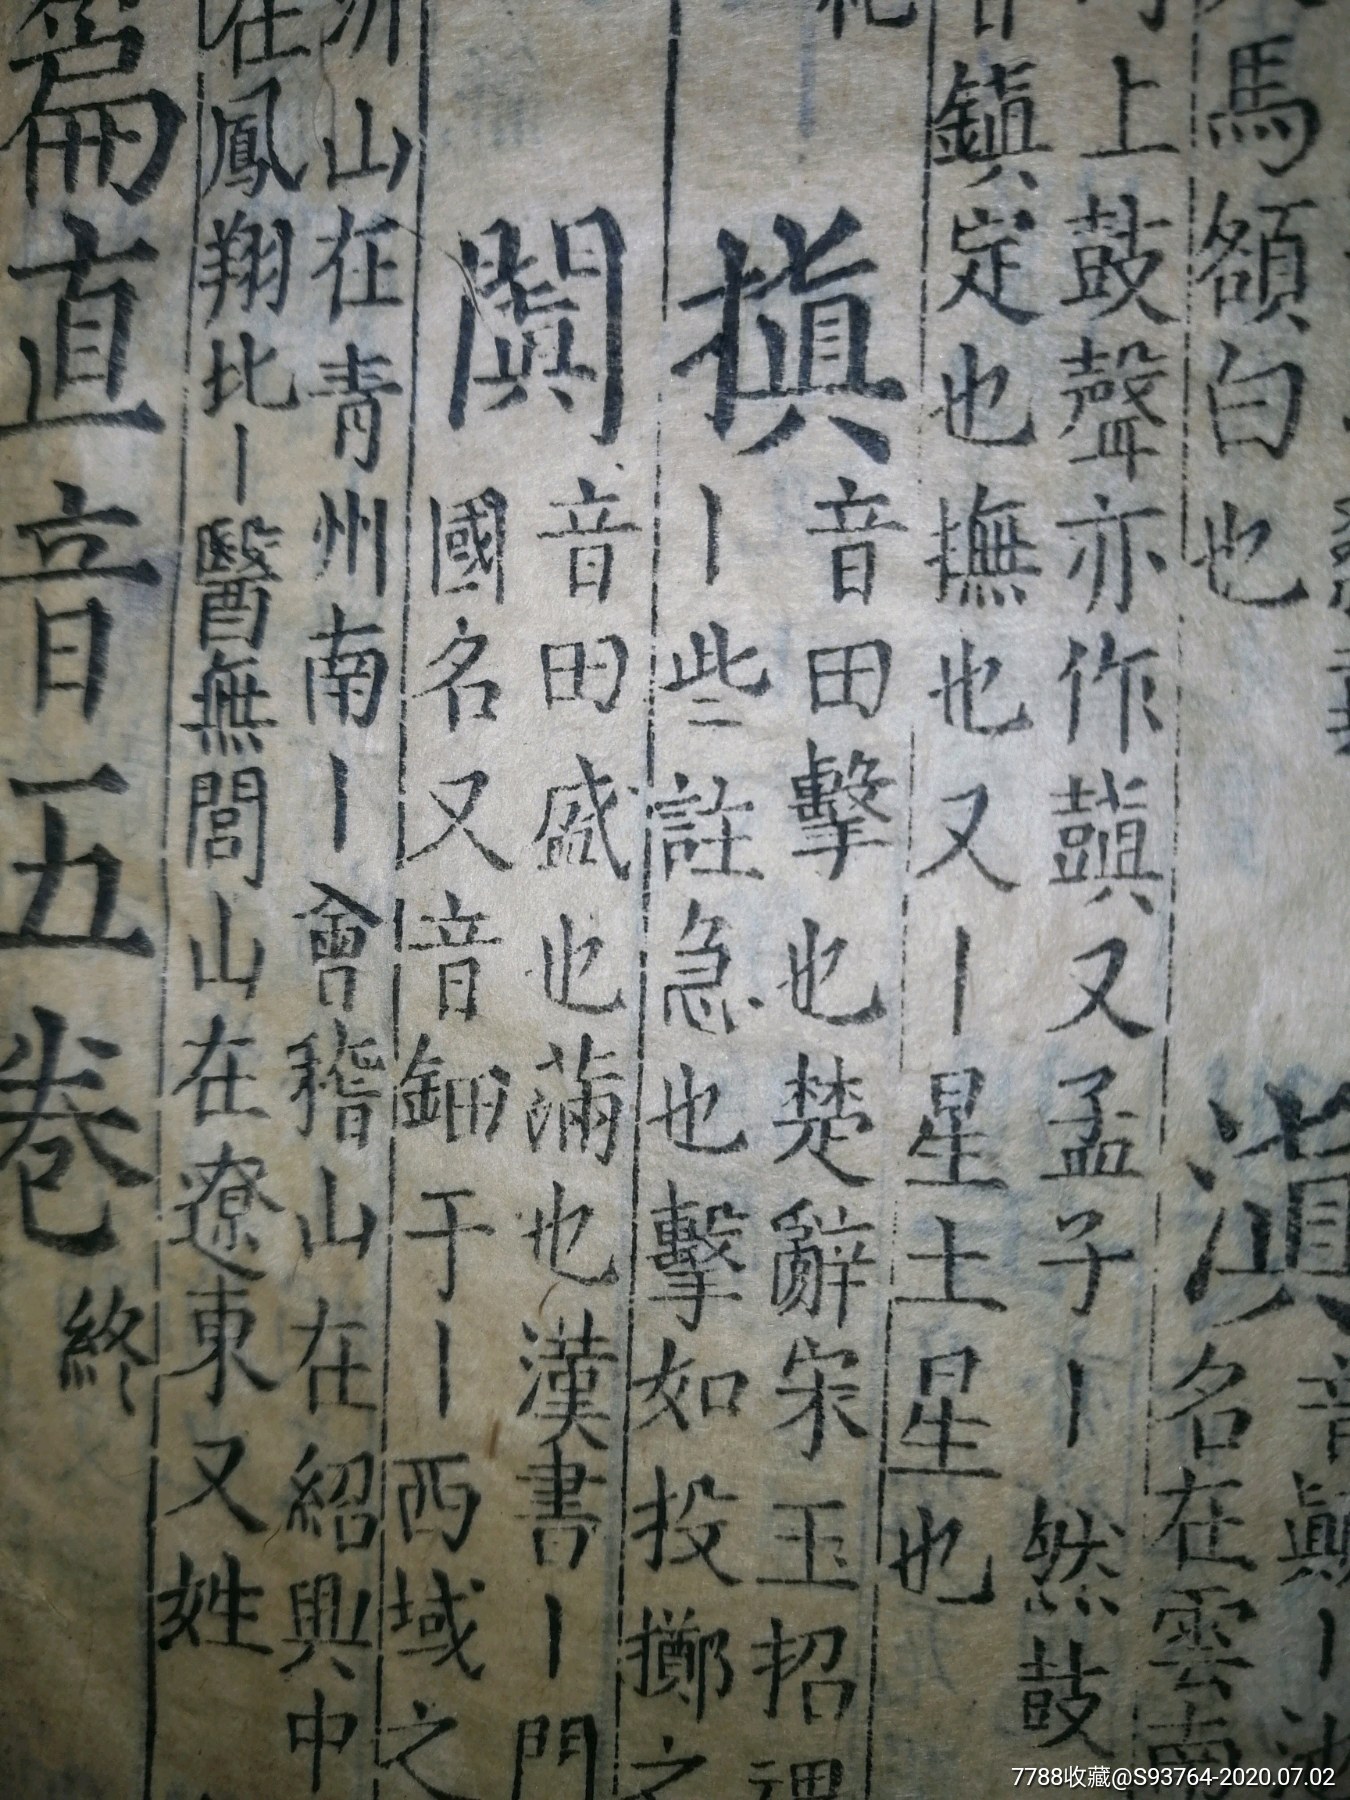 馬額白也
滇
名在雲南
上鼓聲亦作䪾又孟子丨然鼓
鎮定也撫也又丨星土星也
搷
音田擊也楚辭宋玉招
丨些二註急也擊如投擲之
闐
音田盛也滿也漢書丨門
國名又音鈿于丨西域之
山在青州南丨會稽山在紹興中
在鳳翔北丨醫無閭山在遼東又姓
篇直音五卷終
7788收藏@S93764-2020.07.02